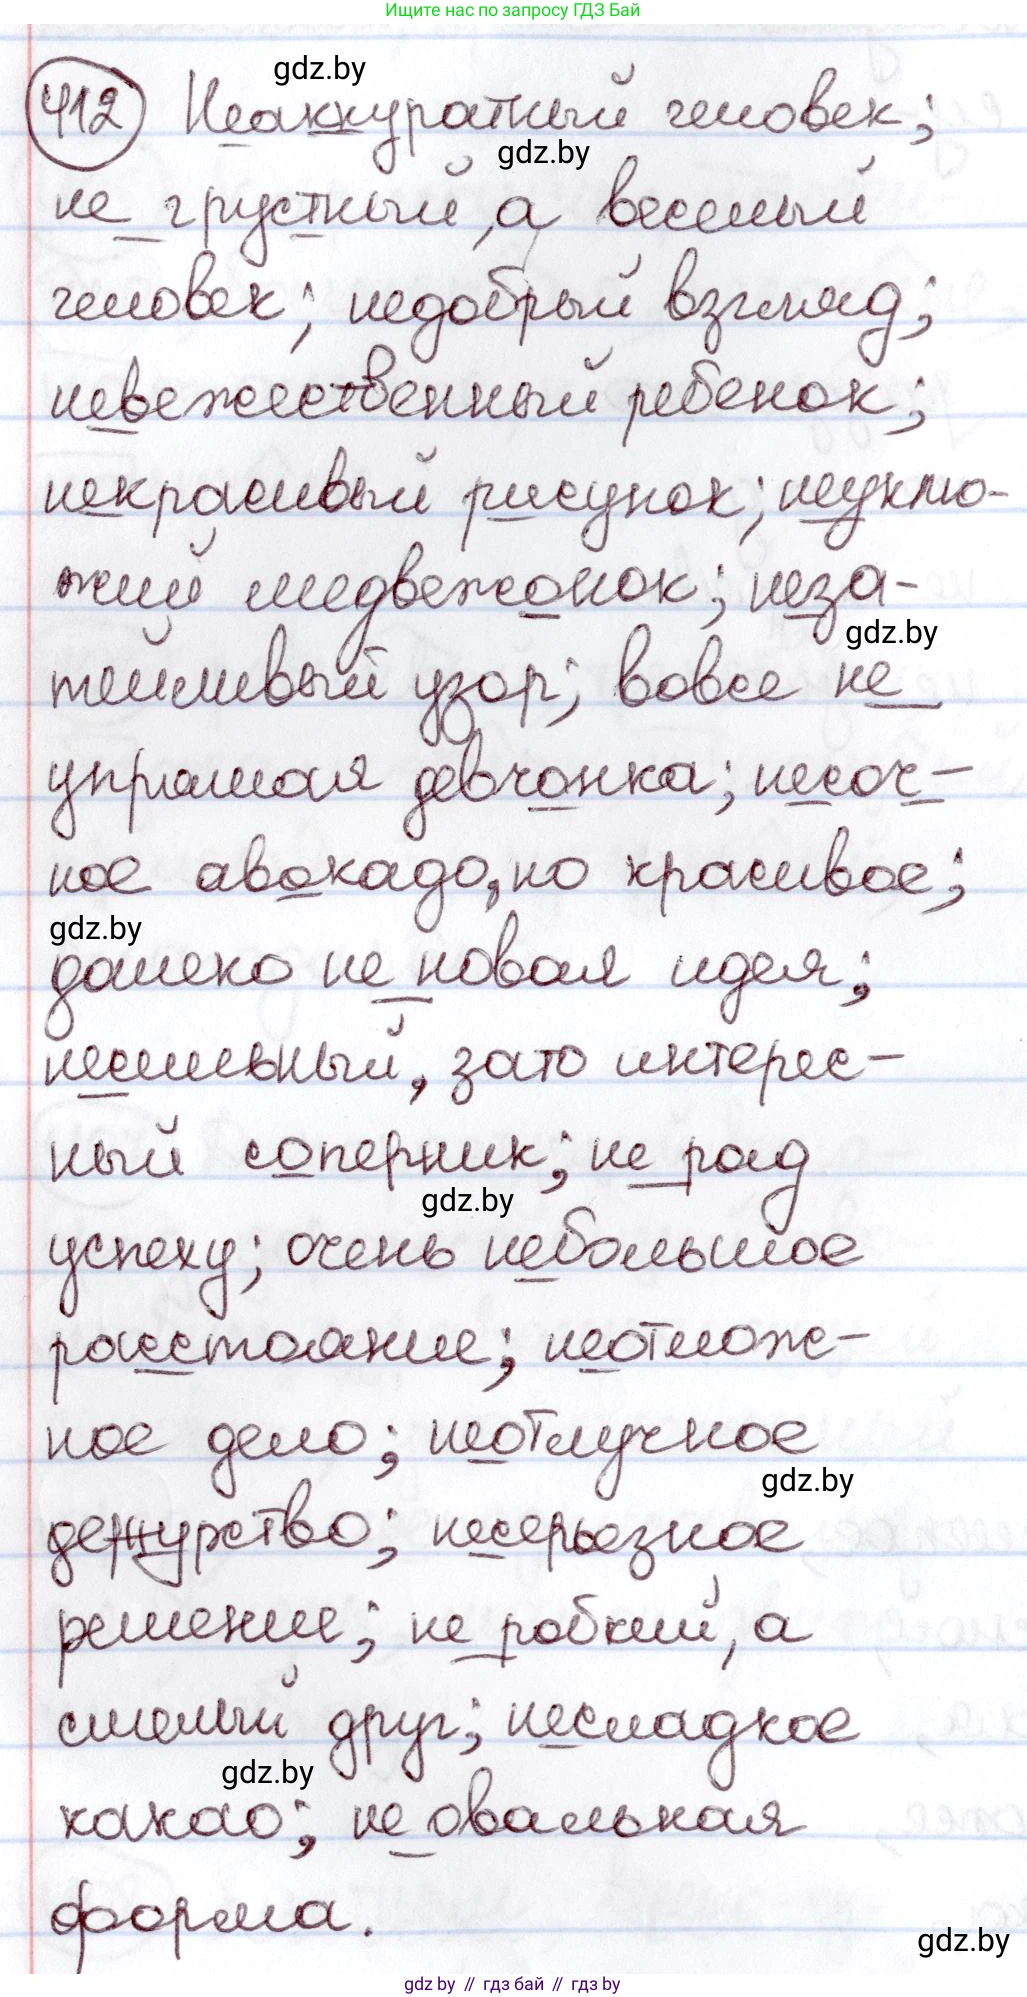 Ищите нас по запросу ГДЗ Бай
gdz.by
412 Неаккуратный человек;
gdz.by
не грустный, а веселый
человек; недобрый взгляд;
невежественный ребенок;
некрасивый рисунок; неуклю-
жий медвежонок; неза-
gdz.by
тейливый узор; вовсе не
упрямая девчонка; несоч-
ное авокадо, но красивое;
gdz.by
далеко не новая идея;
несильный, зато интерес-
ный соперник; не рад
gdz.by
успеху; очень небольшое
расстояние; неотлож-
ное дело; неотлучное
gdz.by
дежурство; несерьезное
решение; не робкий, а
смелый друг; несладкое
gdz.by
какао; не овальная
форма.
gdz.by
gdz.by // гдз бай // гдз by